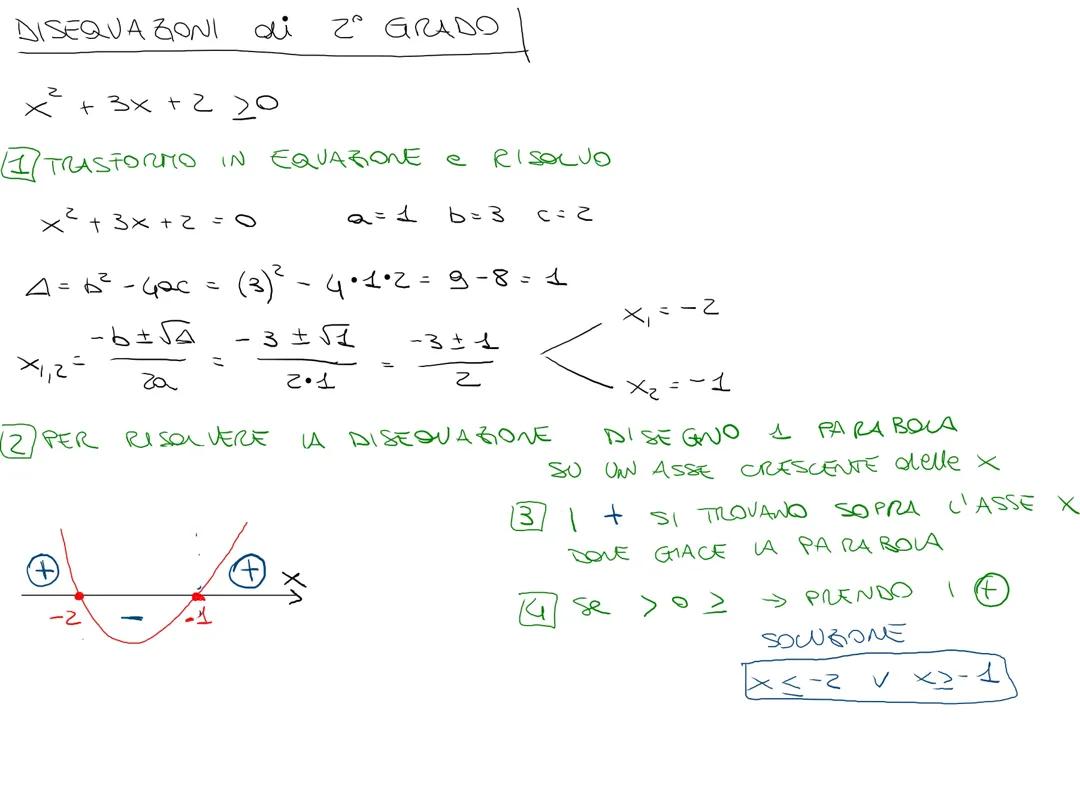 DISEQUAZIONI di 2° GRADO
x² + 3x + 2 ≥0
1 TRASFORMO IN EQUAZIONE e RISOLVO
x² + 3x + 2 = 0 a=1 b=3 c=2
Δ = b² - 4ac = (3)² - 4•1•2 = 9-8 = 1
x₁,₂ = (-b±√Δ)/(2a) = (-3±√1)/(2•1) = (-3±1)/2
x₁ = -2
x₂ = -1
2 PER RISOLVERE LA DISEQUAZIONE DISEGNO 1 PARABOLA
SU UN ASSE CRESCENTE delle x
3 I + SI TROVANO SOPRA L'ASSE X
DOVE GIACE LA PARABOLA
+ - + x
-2 -1
4 se > o ≥ → PRENDO I +
SOLUZIONE
x ≤ -2 ∨ x ≥ -1